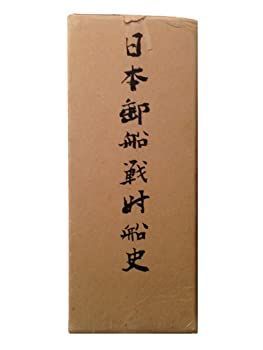 日本郵船戦時船史